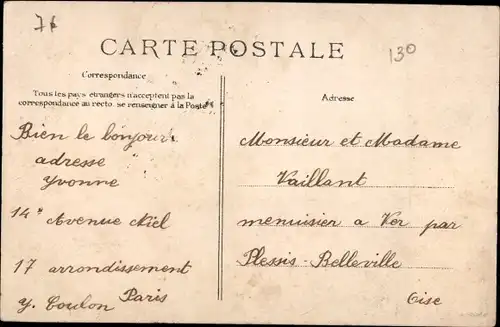 76
130
CARTE POSTALE
Correspondance
Tous les pays étrangers n'acceptent pas la
correspondance au recto. se renseigner à la Poste
Adresse
Bien le bonjour
adresse
Yvonne
14 Avenue Niel
17 arrondissement
Paris
Y. Coulon
Monsieur et Madame
Vaillant
menuisier a Ver par
Plessis-Belleville
Oise